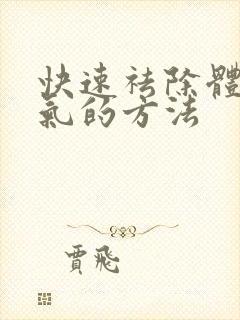 快速祛除體
氣的方法
賈飛